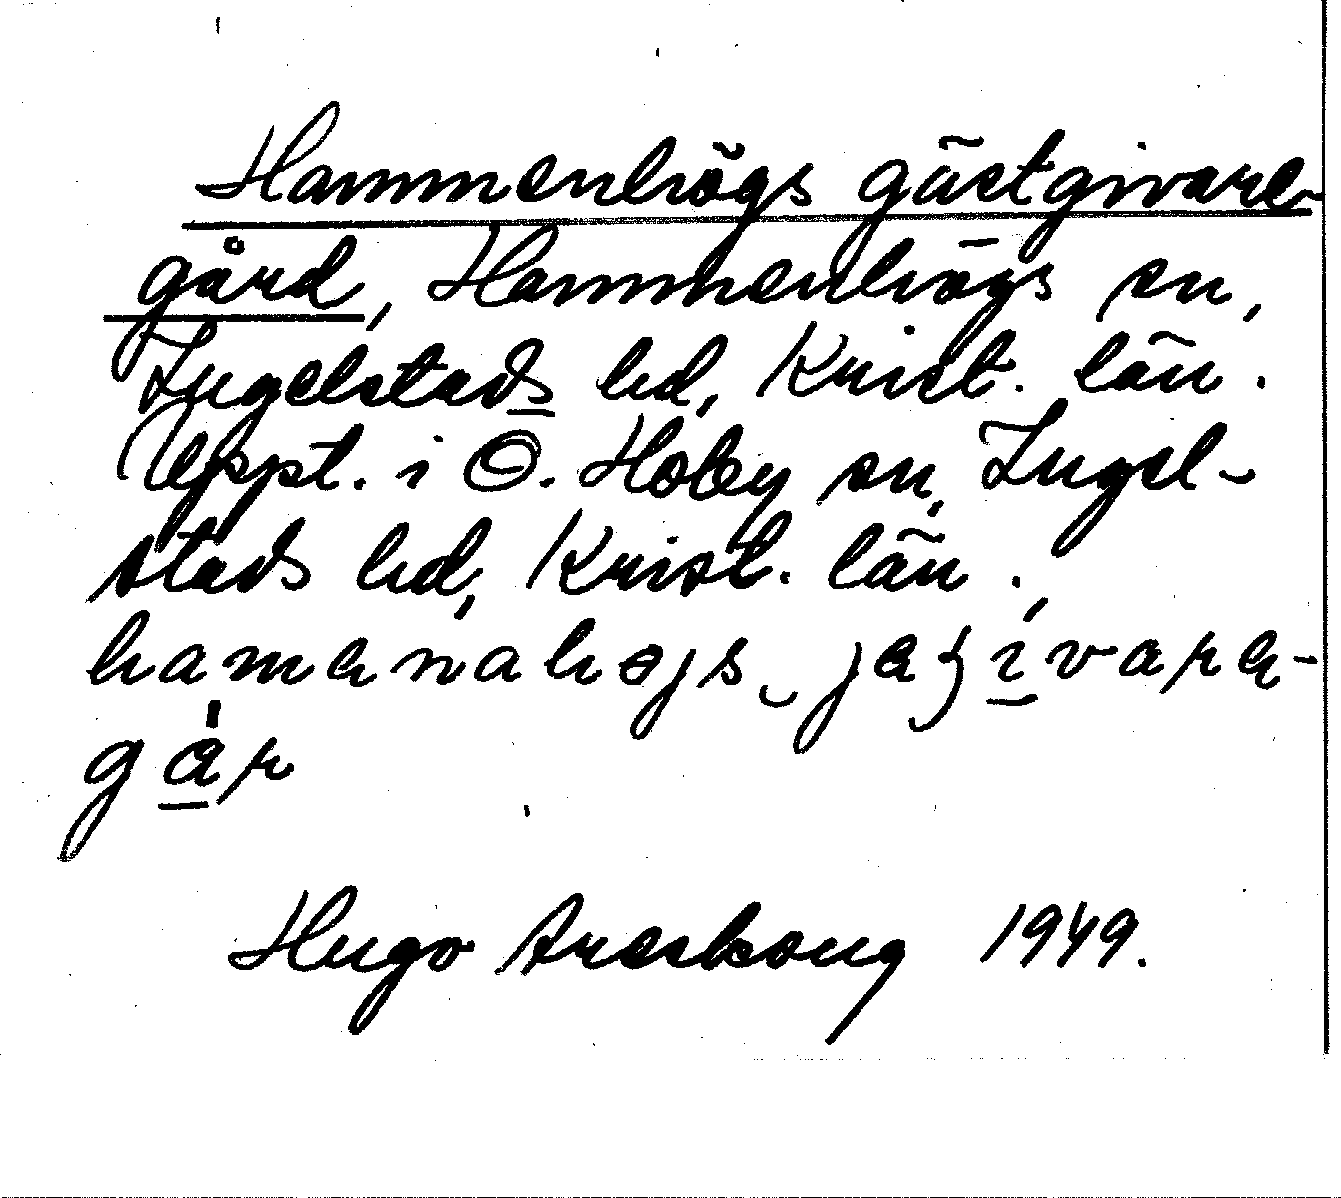 Hammenhögs gästgivare-
gård, Hammenhögs sn,
Ingelstads hd, Krist. län.
Uppt. i Ö. Hoby sn, Ingel-
stads hd, Krist. län.
Hugo Areskoug 1949.